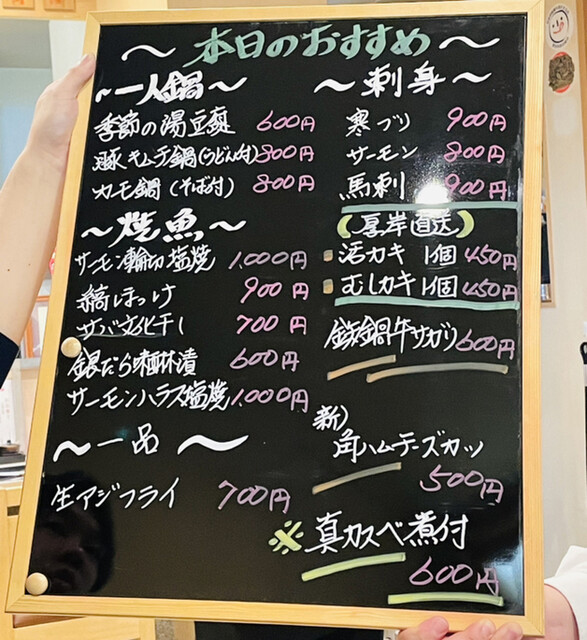 ～本日のおすすめ～
～一人鍋～
季節の湯豆腐 600円
豚キムチ鍋(うどん付) 800円
カモ鍋(そば付) 800円
～焼魚～
サーモン輪切塩焼 1,000円
縞ほっけ 900円
サバ文化干し 700円
銀だら味醂漬 600円
サーモンハラス塩焼 1,000円
～一品～
生アジフライ 700円
～刺身～
寒ブリ 900円
サーモン 800円
馬刺 900円
(厚岸直送)
活カキ 1個 450円
むしカキ 1個 450円
鉄鍋牛サガリ 600円
新)
角ハムチーズカツ
500円
※真カスベ煮付
600円